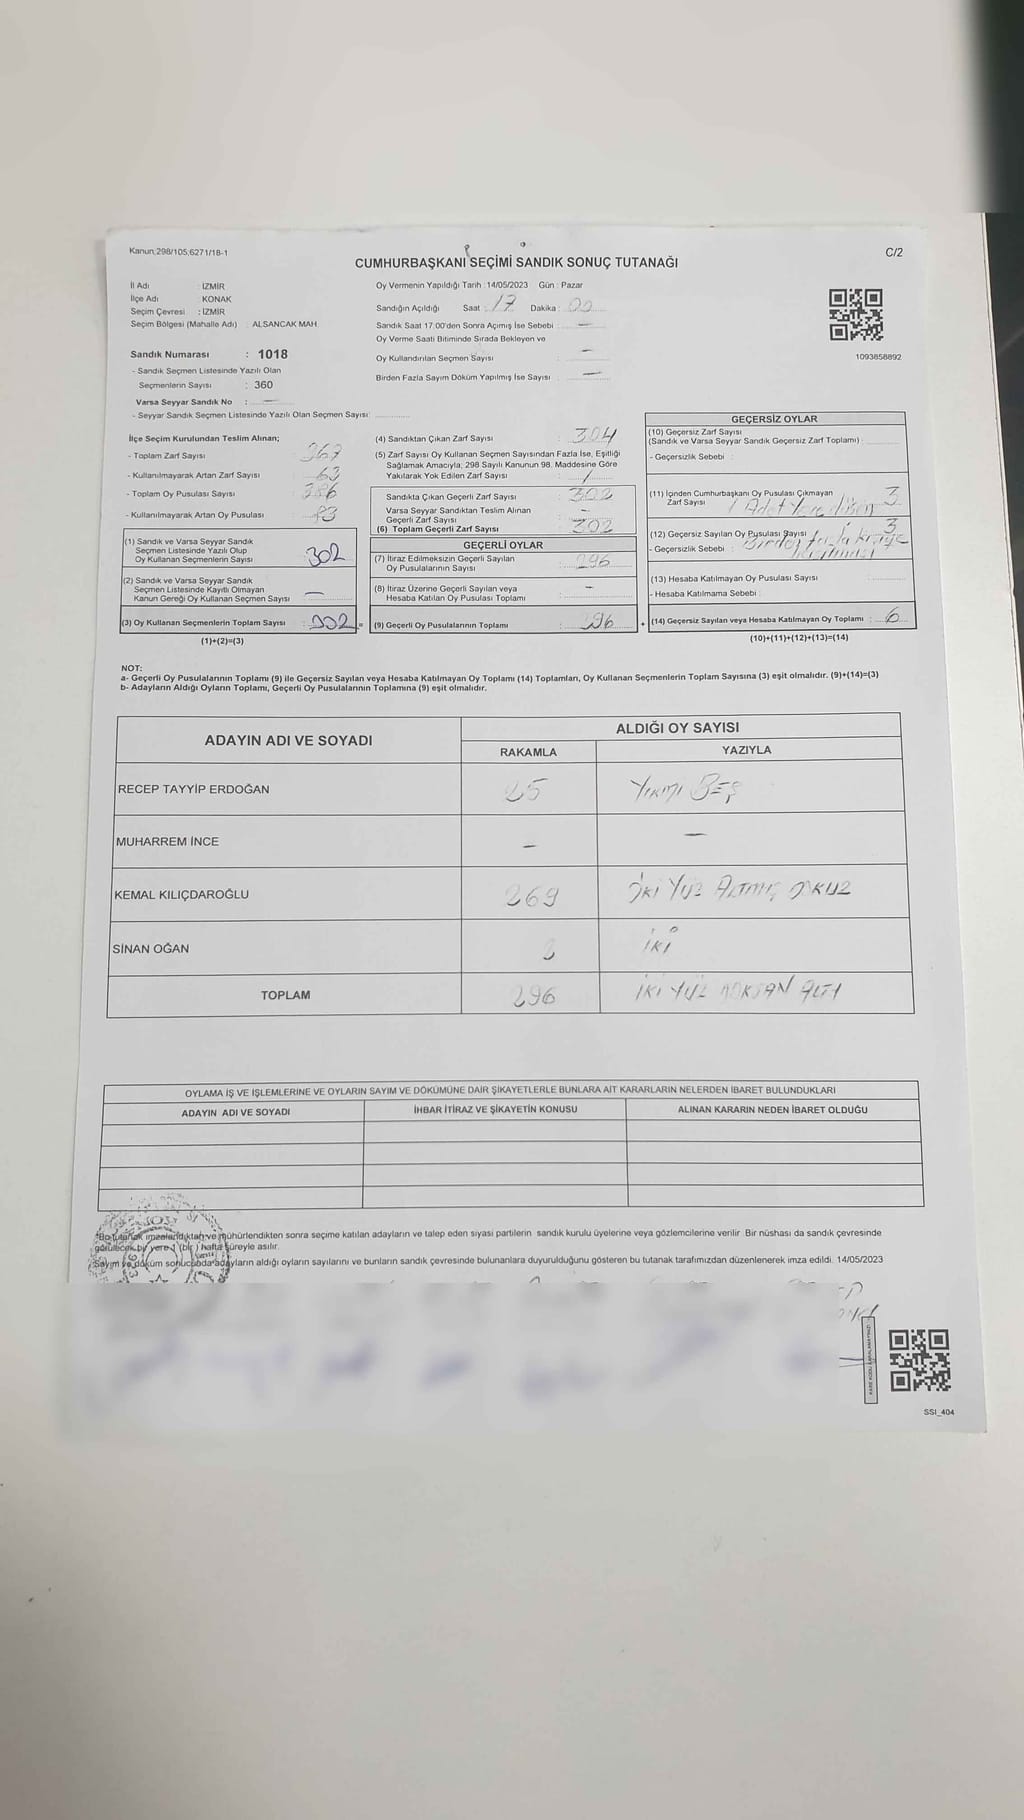 Kanun.298/105,6271/18-1
C/2
CUMHURBAŞKANI SEÇİMİ SANDIK SONUÇ TUTANAĞI
İl Adı : İZMİR
İlçe Adı : KONAK
Seçim Çevresi : İZMİR
Seçim Bölgesi (Mahalle Adı) : ALSANCAK MAH.
Sandık Numarası : 1018
- Sandık Seçmen Listesinde Yazılı Olan
Seçmenlerin Sayısı : 360
Varsa Seyyar Sandık No : —
- Seyyar Sandık Seçmen Listesinde Yazılı Olan Seçmen Sayısı:
Oy Vermenin Yapıldığı Tarih :14/05/2023 Gün : Pazar
Sandığın Açıldığı Saat : 17 Dakika : 00
Sandık Saat 17:00'den Sonra Açımış İse Sebebi : —
Oy Verme Saati Bitiminde Sırada Bekleyen ve
Oy Kullandırılan Seçmen Sayısı : —
Birden Fazla Sayım Döküm Yapılmış İse Sayısı : —
1093858892
İlçe Seçim Kurulundan Teslim Alınan;
- Toplam Zarf Sayısı :
- Kullanılmayarak Artan Zarf Sayısı : 63
- Toplam Oy Pusulası Sayısı :
- Kullanılmayarak Artan Oy Pusulası :
(1) Sandık ve Varsa Seyyar Sandık
Seçmen Listesinde Yazılı Olup
Oy Kullanan Seçmenlerin Sayısı : 302
(2) Sandık ve Varsa Seyyar Sandık
Seçmen Listesinde Kayıtlı Olmayan
Kanun Gereği Oy Kullanan Seçmen Sayısı : —
(3) Oy Kullanan Seçmenlerin Toplam Sayısı : 302 =
(1)+(2)=(3)
(4) Sandıktan Çıkan Zarf Sayısı : 304
(5) Zarf Sayısı Oy Kullanan Seçmen Sayısından Fazla İse, Eşitliği
Sağlamak Amacıyla; 298 Sayılı Kanunun 98. Maddesine Göre
Yakılarak Yok Edilen Zarf Sayısı :
Sandıkta Çıkan Geçerli Zarf Sayısı : 302
Varsa Seyyar Sandıktan Teslim Alınan
Geçerli Zarf Sayısı : —
(6) Toplam Geçerli Zarf Sayısı : 302
GEÇERLİ OYLAR
(7) İtiraz Edilmeksizin Geçerli Sayılan
Oy Pusulalarının Sayısı : 296
(8) İtiraz Üzerine Geçerli Sayılan veya
Hesaba Katılan Oy Pusulası Toplamı : —
(9) Geçerli Oy Pusulalarının Toplamı : 296 +
GEÇERSİZ OYLAR
(10) Geçersiz Zarf Sayısı
(Sandık ve Varsa Seyyar Sandık Geçersiz Zarf Toplamı) :
- Geçersizlik Sebebi :
(11) İçinden Cumhurbaşkanı Oy Pusulası Çıkmayan
Zarf Sayısı : 3
1 Adet Yere düşen
(12) Geçersiz Sayılan Oy Pusulası Sayısı : 3
- Geçersizlik Sebebi : Birden fazla kişiye
(13) Hesaba Katılmayan Oy Pusulası Sayısı :
- Hesaba Katılmama Sebebi :
(14) Geçersiz Sayılan veya Hesaba Katılmayan Oy Toplamı : 6
(10)+(11)+(12)+(13)=(14)
NOT:
a- Geçerli Oy Pusulalarının Toplamı (9) ile Geçersiz Sayılan veya Hesaba Katılmayan Oy Toplamı (14) Toplamları, Oy Kullanan Seçmenlerin Toplam Sayısına (3) eşit olmalıdır. (9)+(14)=(3)
b- Adayların Aldığı Oyların Toplamı, Geçerli Oy Pusulalarının Toplamına (9) eşit olmalıdır.
ADAYIN ADI VE SOYADI
ALDIĞI OY SAYISI
RAKAMLA YAZIYLA
RECEP TAYYİP ERDOĞAN 25 YİRMİ BEŞ
MUHARREM İNCE — —
KEMAL KILIÇDAROĞLU 269 İKİ YÜZ ALTMIŞ DOKUZ
SİNAN OĞAN 2 İKİ
TOPLAM 296 İKİ YÜZ DOKSAN ALTI
OYLAMA İŞ VE İŞLEMLERİNE VE OYLARIN SAYIM VE DÖKÜMÜNE DAİR ŞİKAYETLERLE BUNLARA AİT KARARLARIN NELERDEN İBARET BULUNDUKLARI
ADAYIN ADI VE SOYADI İHBAR İTİRAZ VE ŞİKAYETİN KONUSU ALINAN KARARIN NEDEN İBARET OLDUĞU
*Bu tutanak imzalandıktan ve mühürlendikten sonra seçime katılan adayların ve talep eden siyasi partilerin sandık kurulu üyelerine veya gözlemcilerine verilir. Bir nüshası da sandık çevresinde
görülecek bir yere 1 (bir) hafta süreyle asılır.
Sayım ve döküm sonucunda adayların aldığı oyların sayılarını ve bunların sandık çevresinde bulunanlara duyurulduğunu gösteren bu tutanak tarafımızdan düzenlenerek imza edildi. 14/05/2023
SSI_404